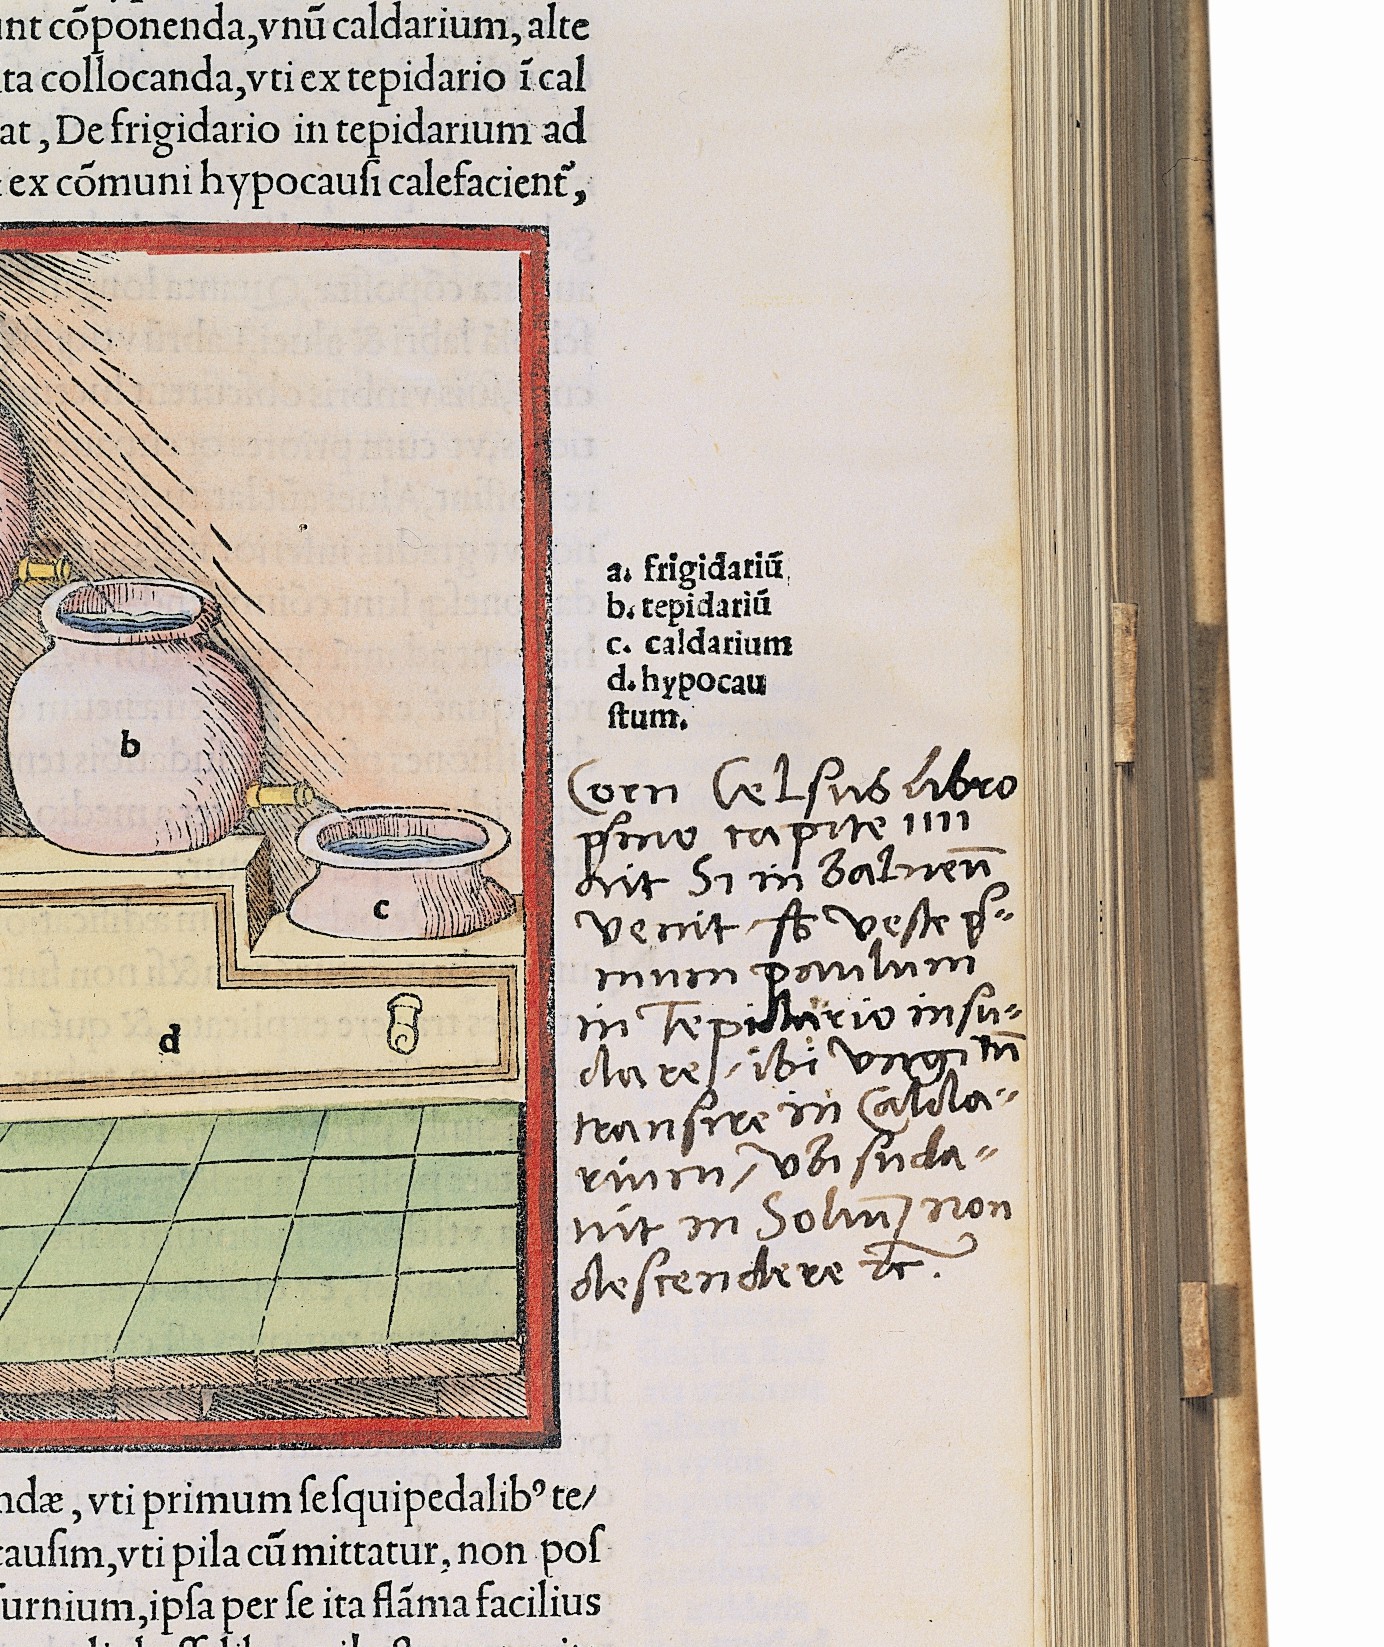 unt cōponenda,vnū caldarium, alte
ta collocanda,vti ex tepidario ī cal
at, De frigidario in tepidarium ad
ex cōmuni hypocauſi calefacient̃,
a. frigidariū
b. tepidariū
c. caldarium
d. hypocau
ſtum.
b
c
d
Corn Celsus libro
pͥmo capite 4
ait Si in Balneū
venit sb veste pͥ=
mum paulum
in Tepidario insu=
dare, ibi vngi tū
transire in Calda=
rium / vbi suda=
uit in Soliū non
descendere ꝛc.
ndæ, vti primum ſeſquipedalibꝰ te/
cauſim,vti pila cū mittatur, non poſ
urnium,ipſa per ſe ita flāma facilius